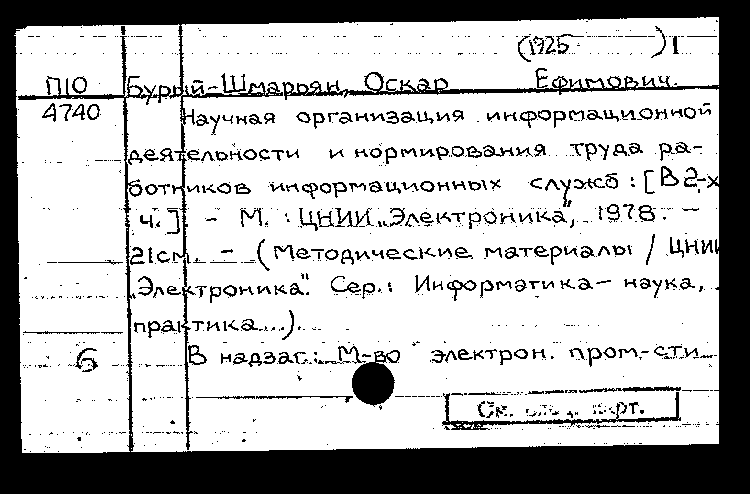 (1925 ) 1
П10 Бурый-Шмарьян, Оскар Ефимович.
4740 Научная организация информационной
деятельности и нормирования труда ра-
ботников информационных служб : [В 2-х
ч.]. - М. : ЦНИИ „Электроника", 1978. -
21см. - (Методические материалы / ЦНИИ
„Электроника". Сер.: Информатика - наука,
практика...).
6 В надзаг.: М-во электрон. пром-сти
См. след. карт.